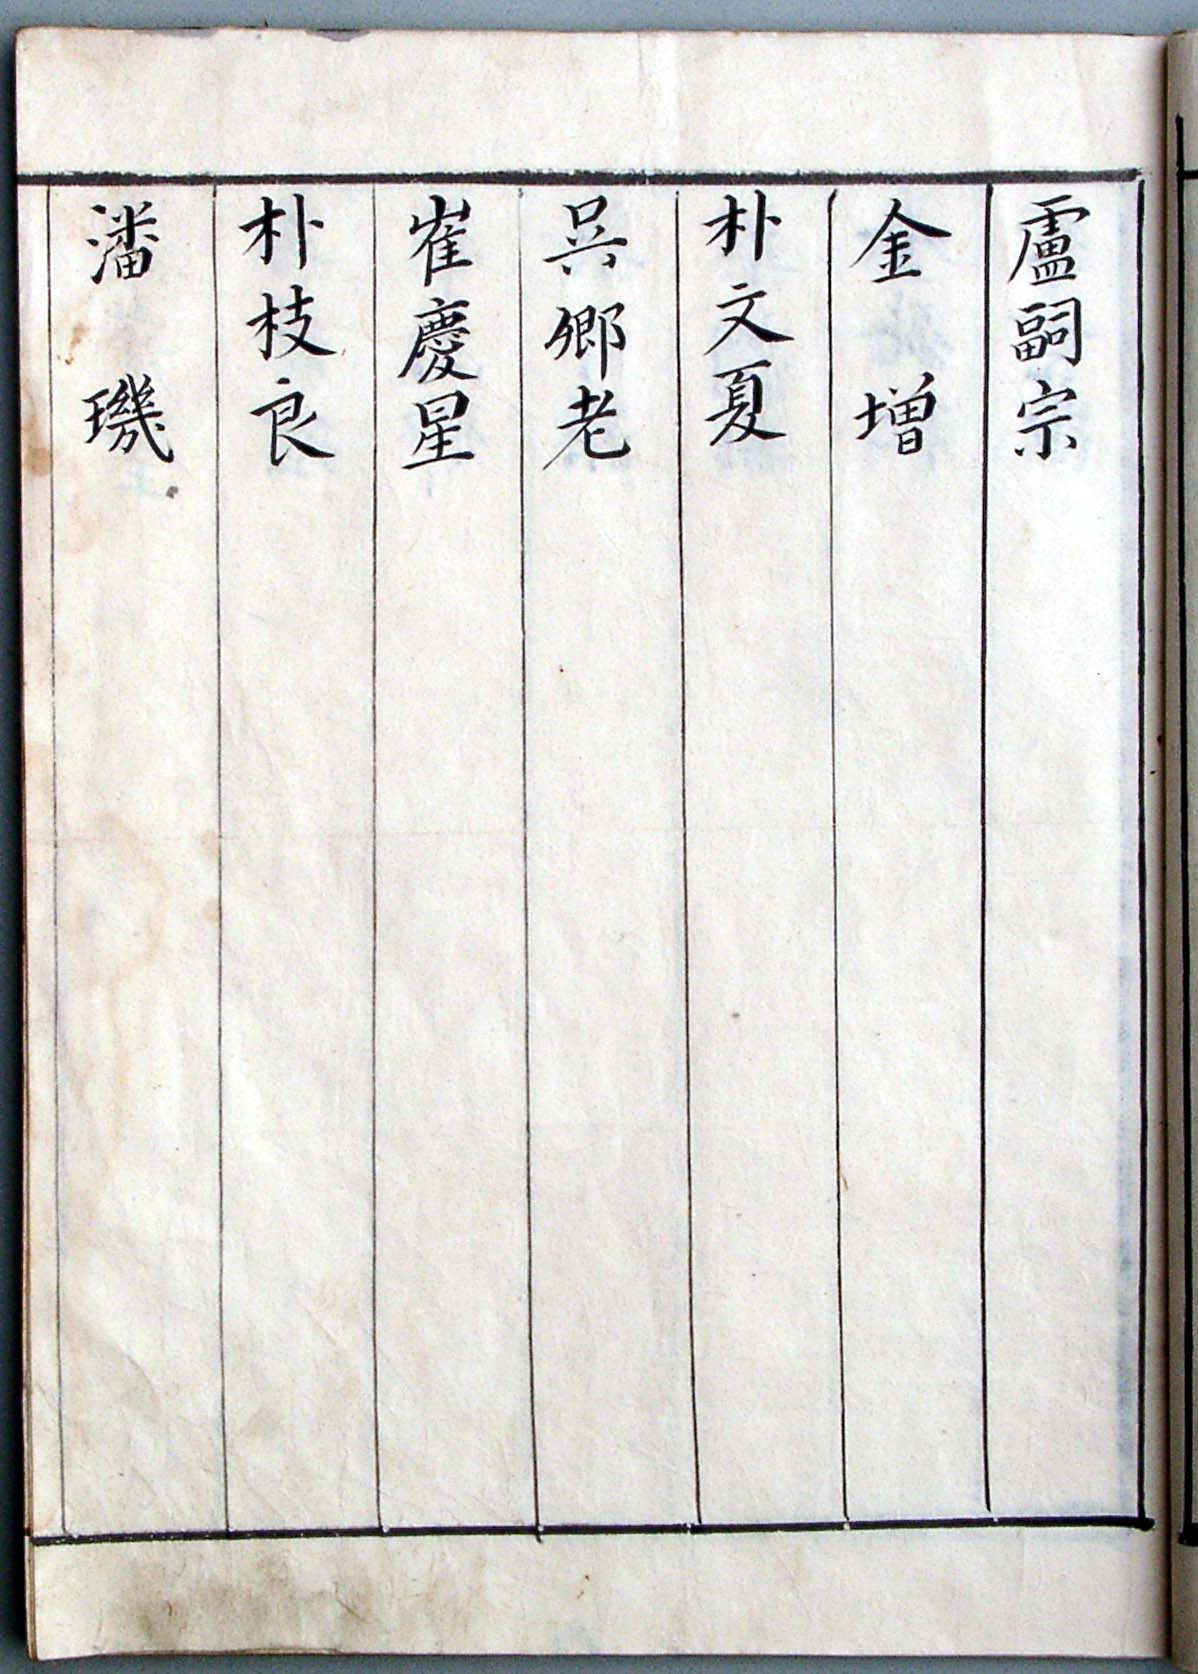 盧嗣宗
金增
朴文夏
吳鄉老
崔慶星
朴枝良
潘璣